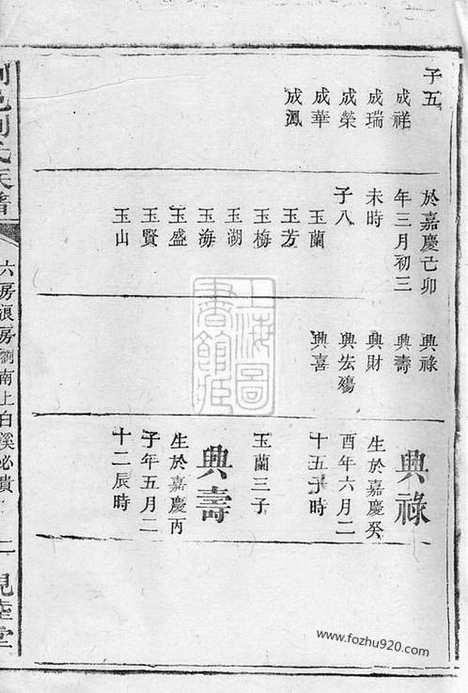 子五
成祥
成瑞
成榮
成華
成鳳
於嘉慶己卯
年三月初三
未時
子八
玉蘭
玉芳
玉梅
玉湖
玉海
玉盛
玉賢
玉山
興祿
興壽
興財
興宏殤
興喜
興祿
生於嘉慶癸
酉年六月二
十五子時
玉蘭三子
興壽
生於嘉慶丙
子年五月二
十二辰時
氏族譜
六房浪房瀏南上白溪必貴
上海圖
書館藏
www.fozhu920.com